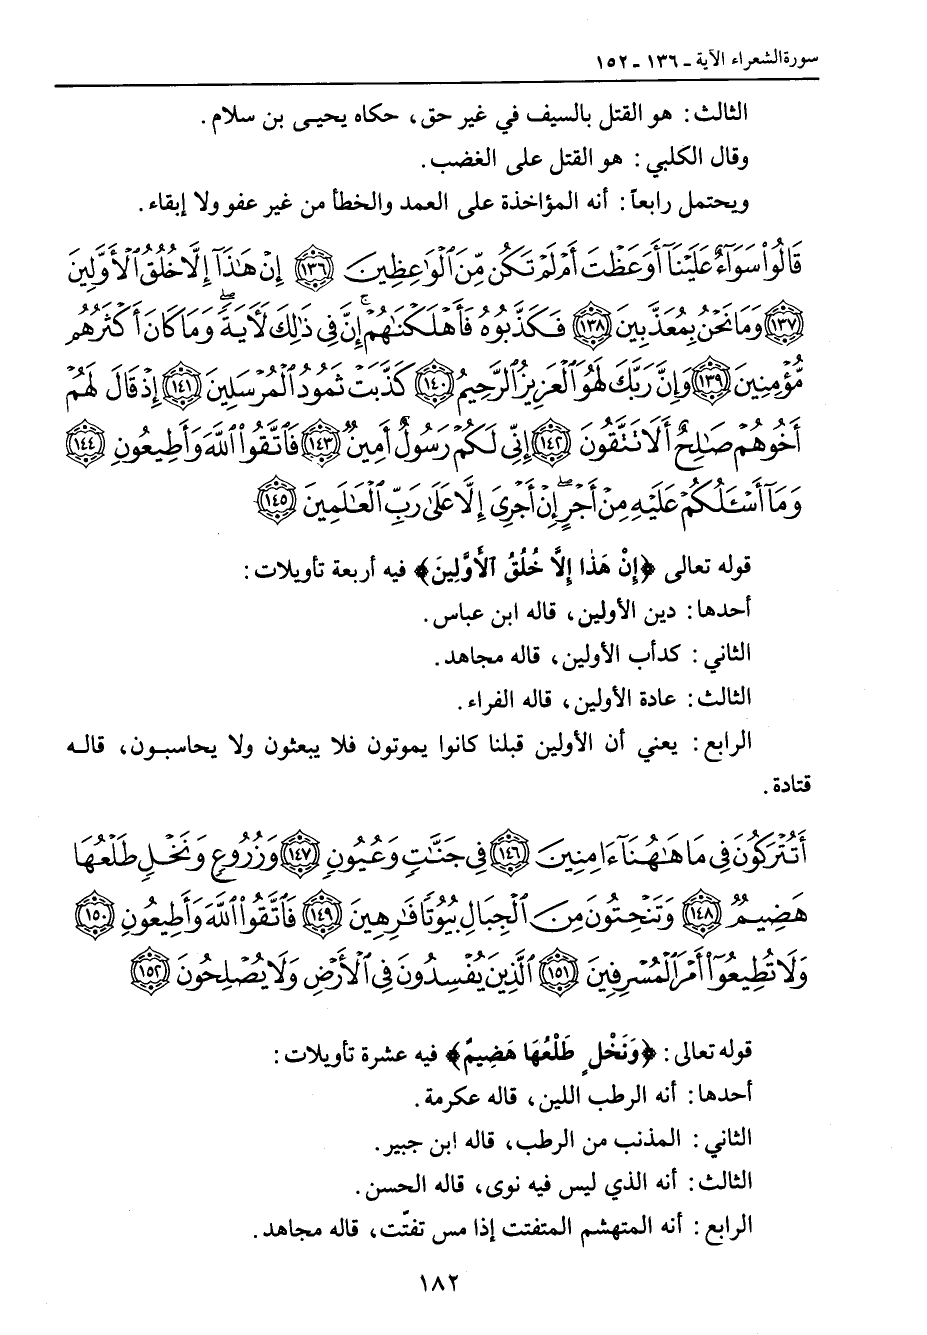 سورة الشعراء الآية ـ ١٣٦ ـ ١٥٢
الثالث: هو القتل بالسيف في غير حق، حكاه يحيى بن سلام.
وقال الكلبي: هو القتل على الغضب.
ويحتمل رابعاً: أنه المؤاخذة على العمد والخطأ من غير عفو ولا إبقاء.
قَالُوا۟ سَوَآءٌ عَلَيْنَآ أَوَعَظْتَ أَمْ لَمْ تَكُن مِّنَ ٱلْوَٰعِظِينَ ١٣٦ إِنْ هَٰذَآ إِلَّا خُلُقُ ٱلْأَوَّلِينَ
١٣٧ وَمَا نَحْنُ بِمُعَذَّبِينَ ١٣٨ فَكَذَّبُوهُ فَأَهْلَكْنَٰهُمْ ۚ إِنَّ فِى ذَٰلِكَ لَءَايَةً ۖ وَمَا كَانَ أَكْثَرُهُم
مُّؤْمِنِينَ ١٣٩ وَإِنَّ رَبَّكَ لَهُوَ ٱلْعَزِيزُ ٱلرَّحِيمُ ١٤٠ كَذَّبَتْ ثَمُودُ ٱلْمُرْسَلِينَ ١٤١ إِذْ قَالَ لَهُمْ
أَخُوهُمْ صَٰلِحٌ أَلَا تَتَّقُونَ ١٤٢ إِنِّى لَكُمْ رَسُولٌ أَمِينٌ ١٤٣ فَٱتَّقُوا۟ ٱللَّهَ وَأَطِيعُونِ ١٤٤
وَمَآ أَسْـَٔلُكُمْ عَلَيْهِ مِنْ أَجْرٍ ۖ إِنْ أَجْرِىَ إِلَّا عَلَىٰ رَبِّ ٱلْعَٰلَمِينَ ١٤٥
قوله تعالى ﴿إِنْ هَٰذَا إِلَّا خُلُقُ ٱلْأَوَّلِينَ﴾ فيه أربعة تأويلات:
أحدها: دين الأولين، قاله ابن عباس.
الثاني: كدأب الأولين، قاله مجاهد.
الثالث: عادة الأولين، قاله الفراء.
الرابع: يعني أن الأولين قبلنا كانوا يموتون فلا يبعثون ولا يحاسبون، قاله
قتادة.
أَتُتْرَكُونَ فِى مَا هَٰهُنَآ ءَامِنِينَ ١٤٦ فِى جَنَّٰتٍ وَعُيُونٍ ١٤٧ وَزُرُوعٍ وَنَخْلٍ طَلْعُهَا
هَضِيمٌ ١٤٨ وَتَنْحِتُونَ مِنَ ٱلْجِبَالِ بُيُوتًا فَٰرِهِينَ ١٤٩ فَٱتَّقُوا۟ ٱللَّهَ وَأَطِيعُونِ ١٥٠
وَلَا تُطِيعُوٓا۟ أَمْرَ ٱلْمُسْرِفِينَ ١٥١ ٱلَّذِينَ يُفْسِدُونَ فِى ٱلْأَرْضِ وَلَا يُصْلِحُونَ ١٥٢
قوله تعالى: ﴿وَنَخْلٍ طَلْعُهَا هَضِيمٌ﴾ فيه عشرة تأويلات:
أحدها: أنه الرطب اللين، قاله عكرمة.
الثاني: المذنب من الرطب، قاله ابن جبير.
الثالث: أنه الذي ليس فيه نوى، قاله الحسن.
الرابع: أنه المتهشم المتفتت إذا مس تفتّت، قاله مجاهد.
١٨٢